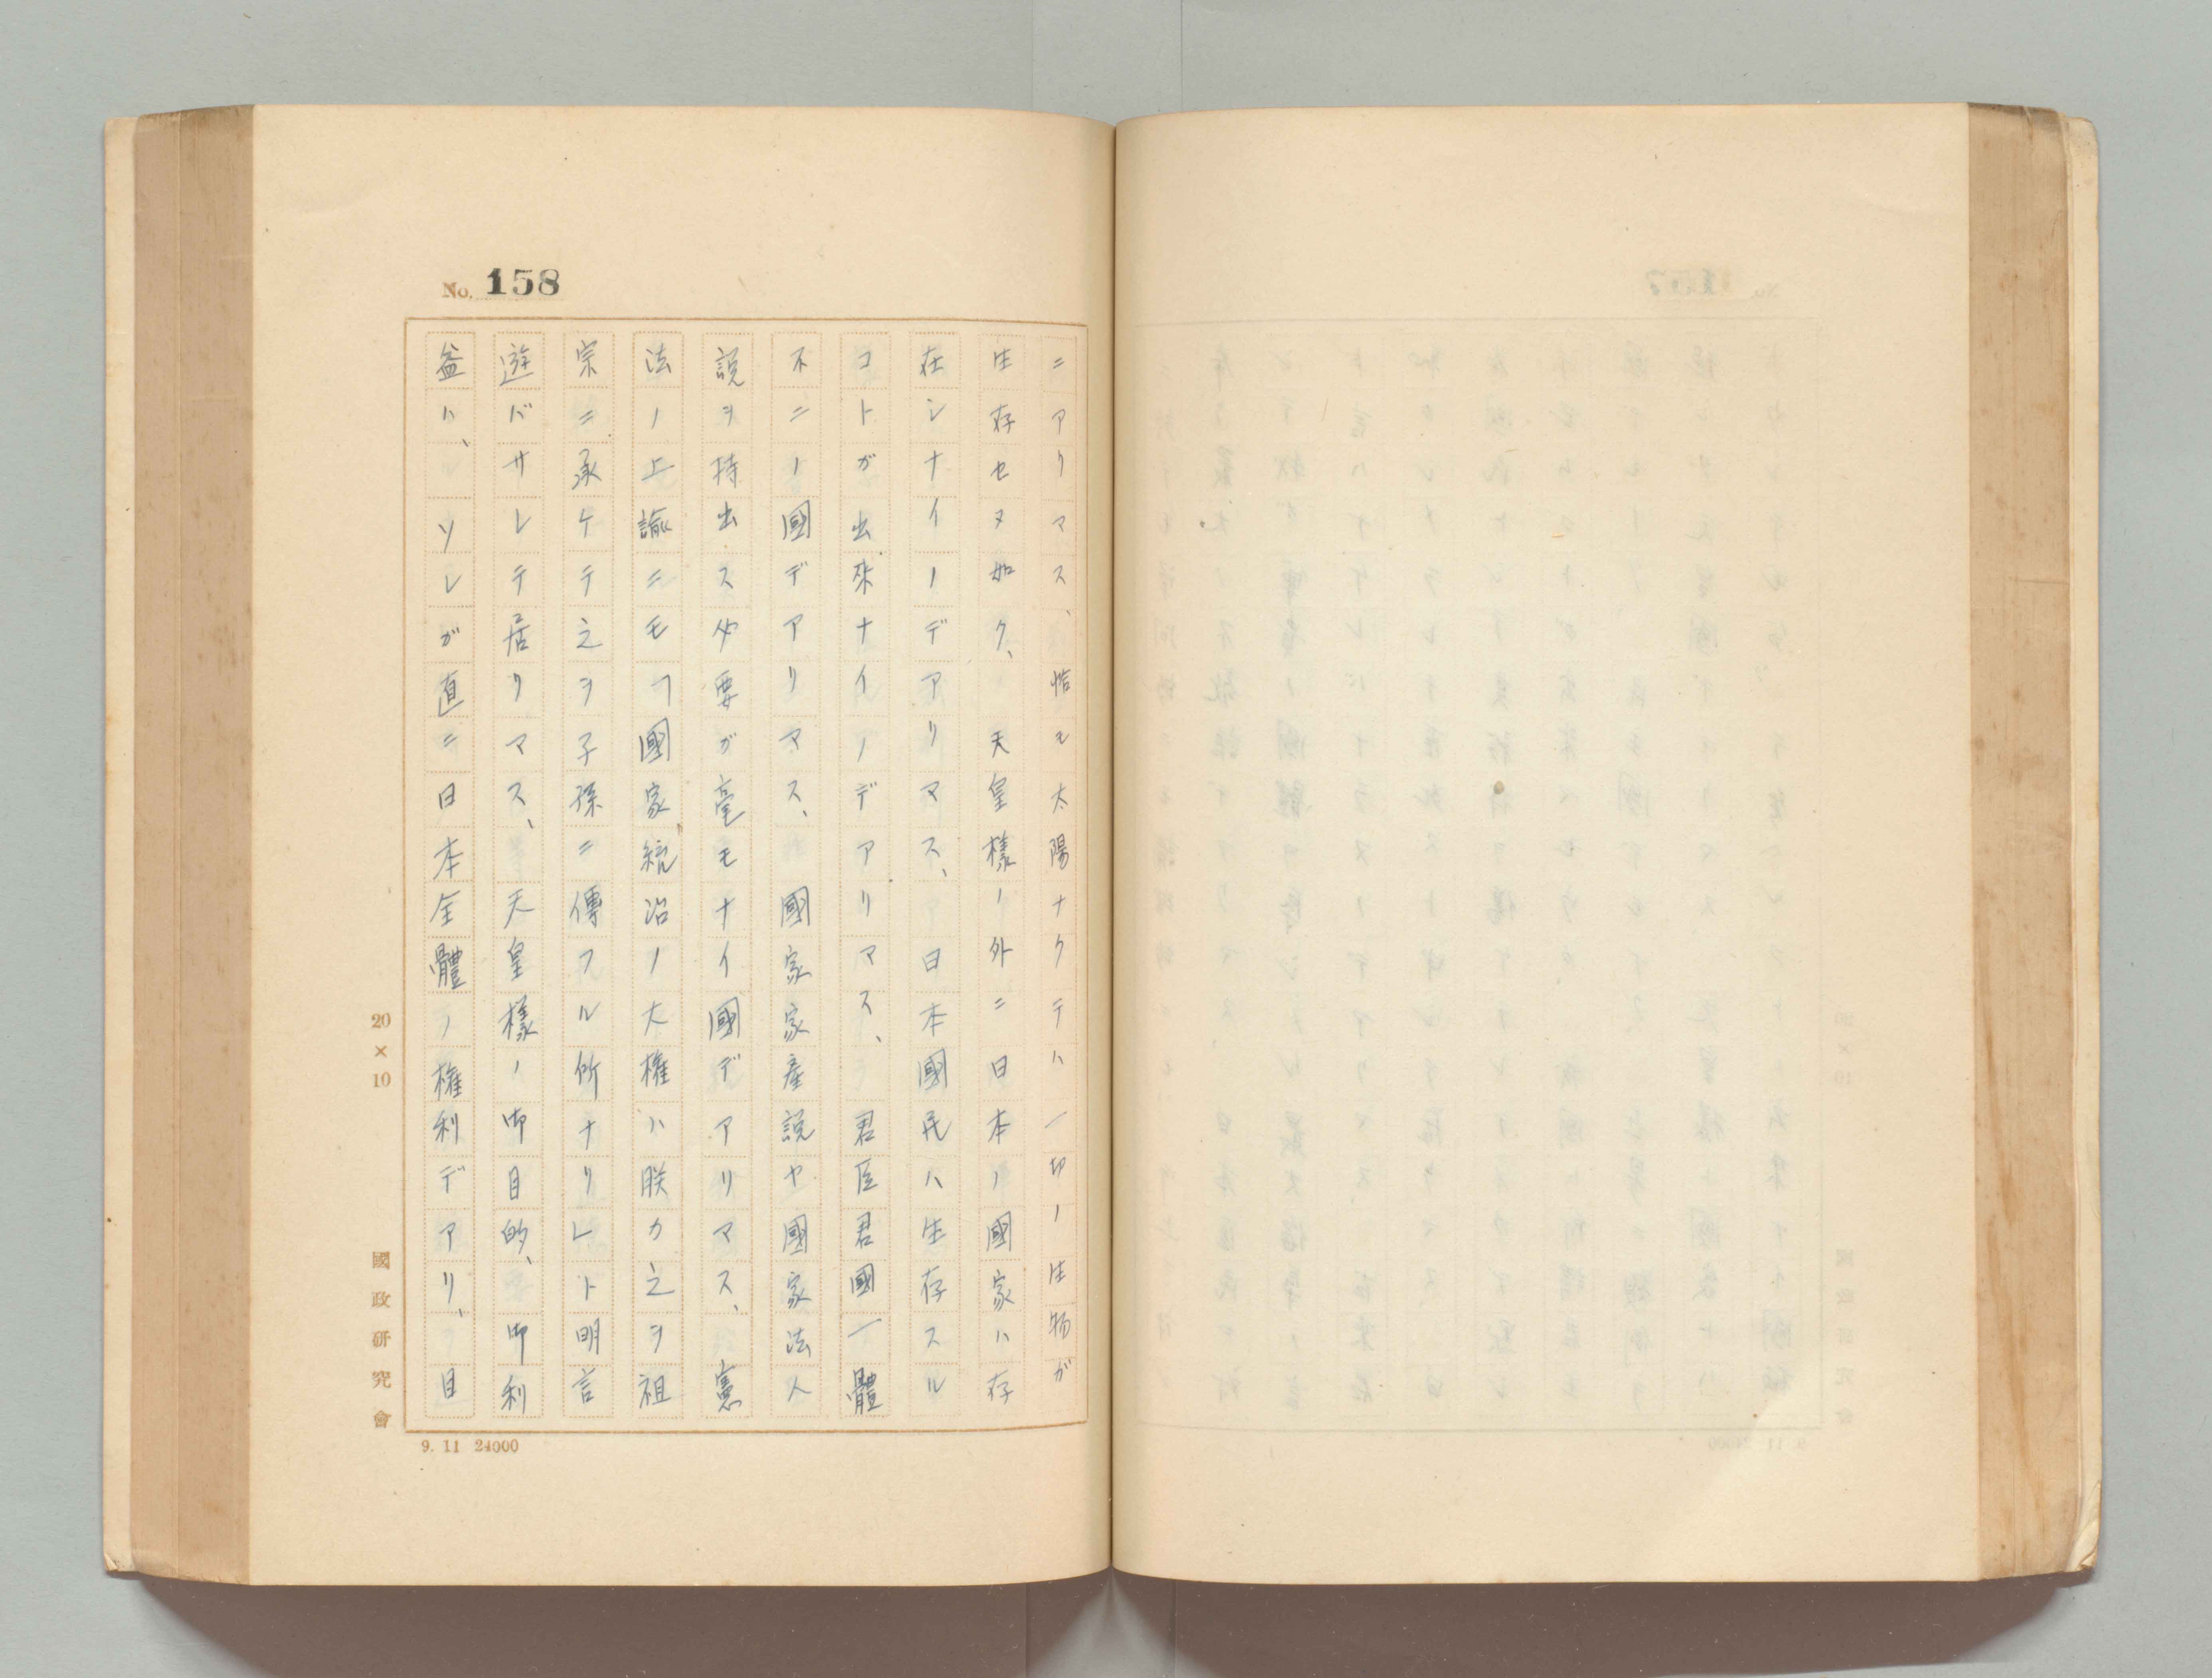 No. 158
ニアリマス、恰モ太陽ナクテハ一切ノ生物ガ
生存セヌ如ク、天皇樣ノ外ニ日本ノ國家ハ存
在シナイノデアリマス、日本國民ハ生存スル
コトガ出來ナイノデアリマス、君臣君國一體
不二ノ國デアリマス、國家家産説ヤ國家法人
説ヲ持出ス必要ガ毫モナイ國デアリマス、憲
法ノ上諭ニモ「國家統治ノ大權ハ朕カ之ヲ祖
宗ニ承ケテ之ヲ子孫ニ傳フル所ナリ」ト明言
遊バサレテ居リマス、天皇樣ノ御目的、御利
益ハ、ソレガ直ニ日本全體ノ權利デアリ、目
20×10
國政研究會
9. 11 24000